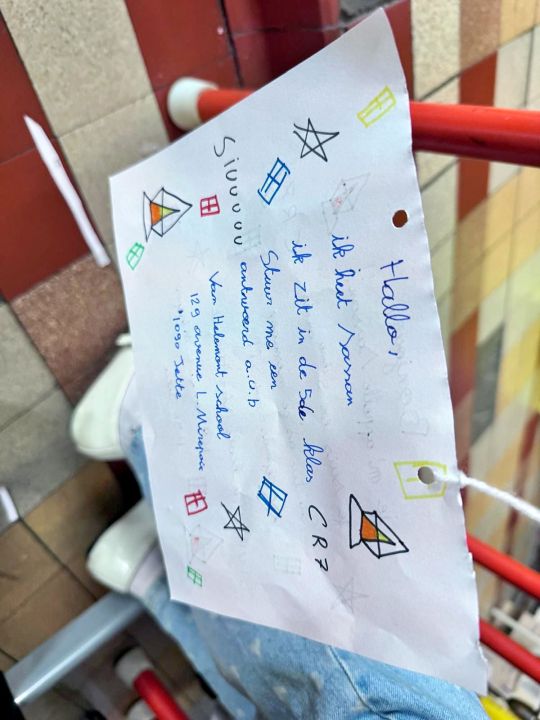 Hallo,
ik heet sanam
ik zit in de 5de klas CR7
Stuur me een
Siuuuuu antwoord a.u.b
Vann Helemont school
129 avenue L. Mirepoix
1090 Jette